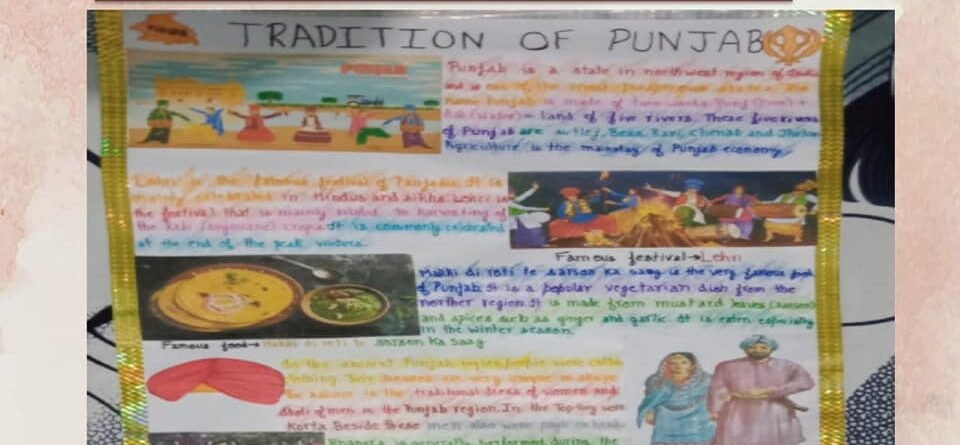 TRADITION OF PUNJAB
PUNJAB
Punjab is a state in northwest region of India
and is one of the most prosperous states. The
name Punjab is made of two words Punj (Five) +
Aab (Water) = land of five rivers. These five rivers
of Punjab are Sutlej, Beas, Ravi, Chenab and Jhelum
Agriculture is the mainstay of Punjab economy
Lohri is the famous festival of Punjabis. It is
mainly celebrated in Hindus and Sikhs. Lohri is
the festival that is mainly related to harvesting of
the Rabi crops. It is commonly celebrated
at the end of the peak winters.
Famous festival→Lohri
Makki di roti te sarson ka saag is the very famous food
of Punjab. It is a popular vegetarian dish from the
norther region. It is made from mustard leaves (sarson)
and spices such as ginger and garlic. It is eaten especially
in the winter season.
Famous food→ Makki di roti te sarson ka saag
In the ancient Punjab region people wore cotton
clothing. Their dresses are very unique in shape
is the traditional dress of women and
dhoti of men in the Punjab region. In the Top they wore
Kurta. Beside these men also wore
Bhangra is generally performed during the